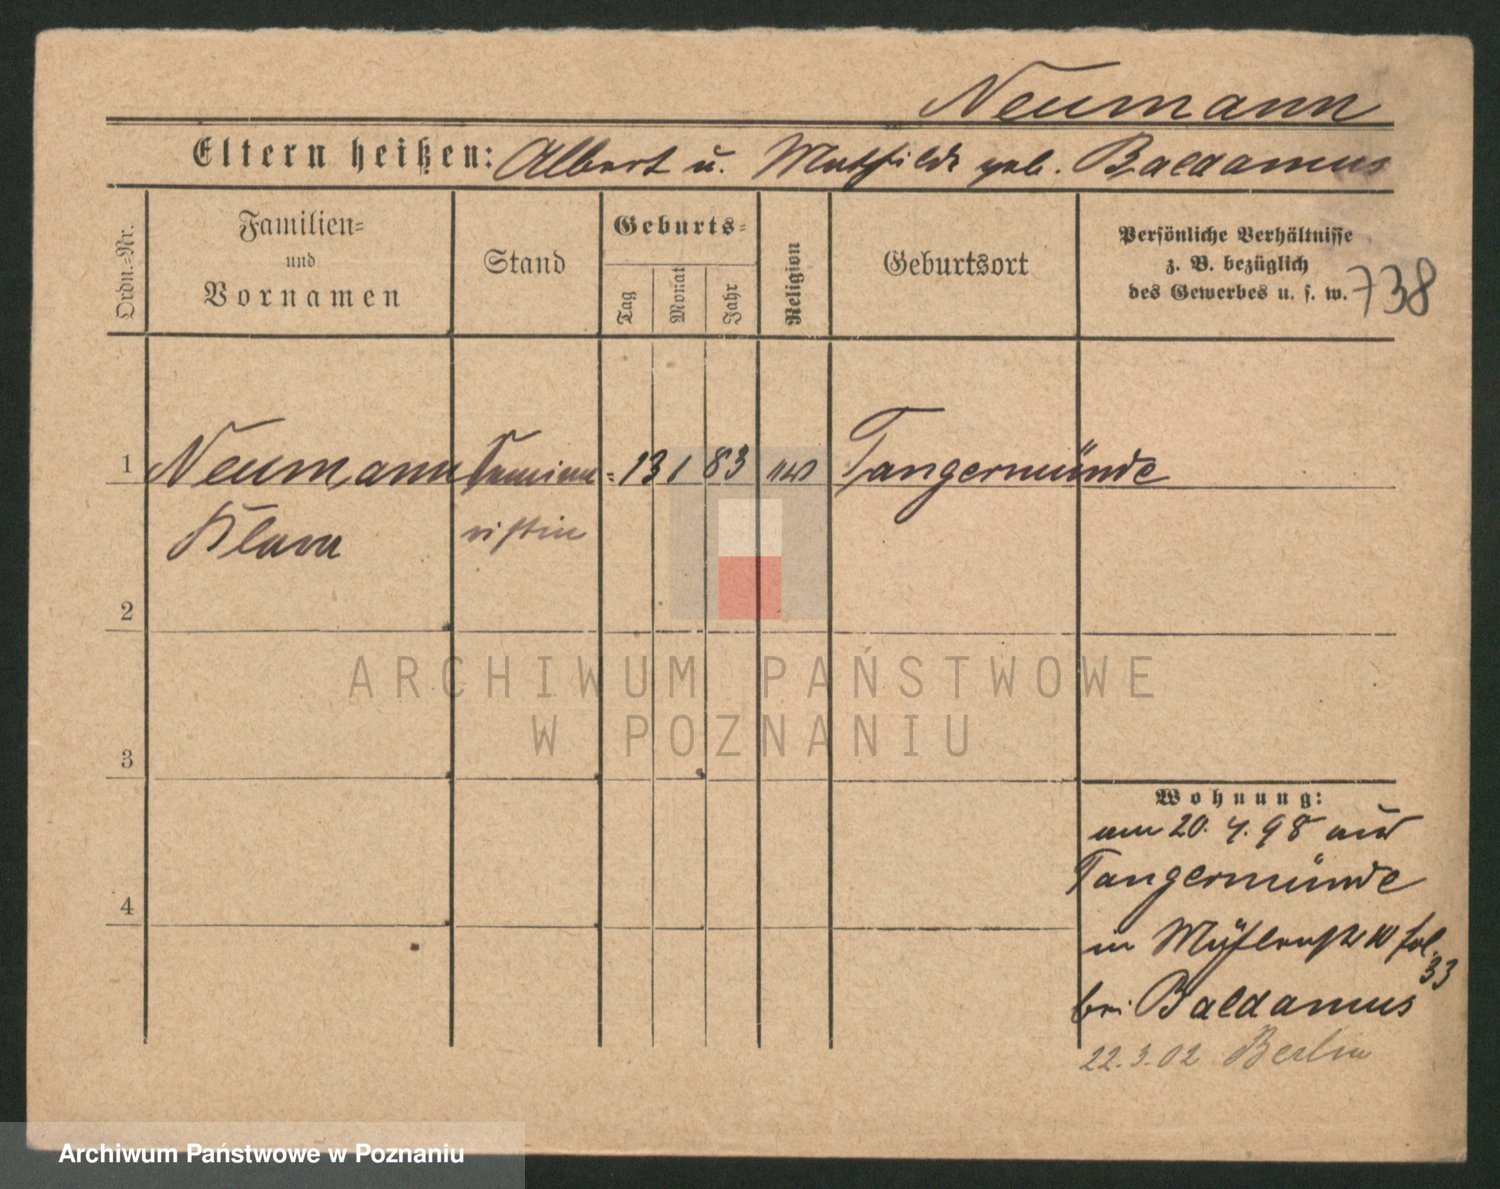 Neumann
Eltern heißen: Albert u. Mathilde geb. Baldamus
Ordn.-Nr.
Familien-
und
Vornamen
Stand
Geburts-
Tag
Monat
Jahr
Religion
Geburtsort
Persönliche Verhältnisse
z. B. bezüglich
des Gewerbes u. s. w.
738
1 Neumann Semina- 13 1 83 Tangermünde
Klara ristin
2
3
4
ARCHIWUM PAŃSTWOWE
W POZNANIU
Wohnung:
am 20. 4. 98 aus
Tangermünde
in
33
bei Baldamus
22. 3. 02 Berlin
Archiwum Państwowe w Poznaniu